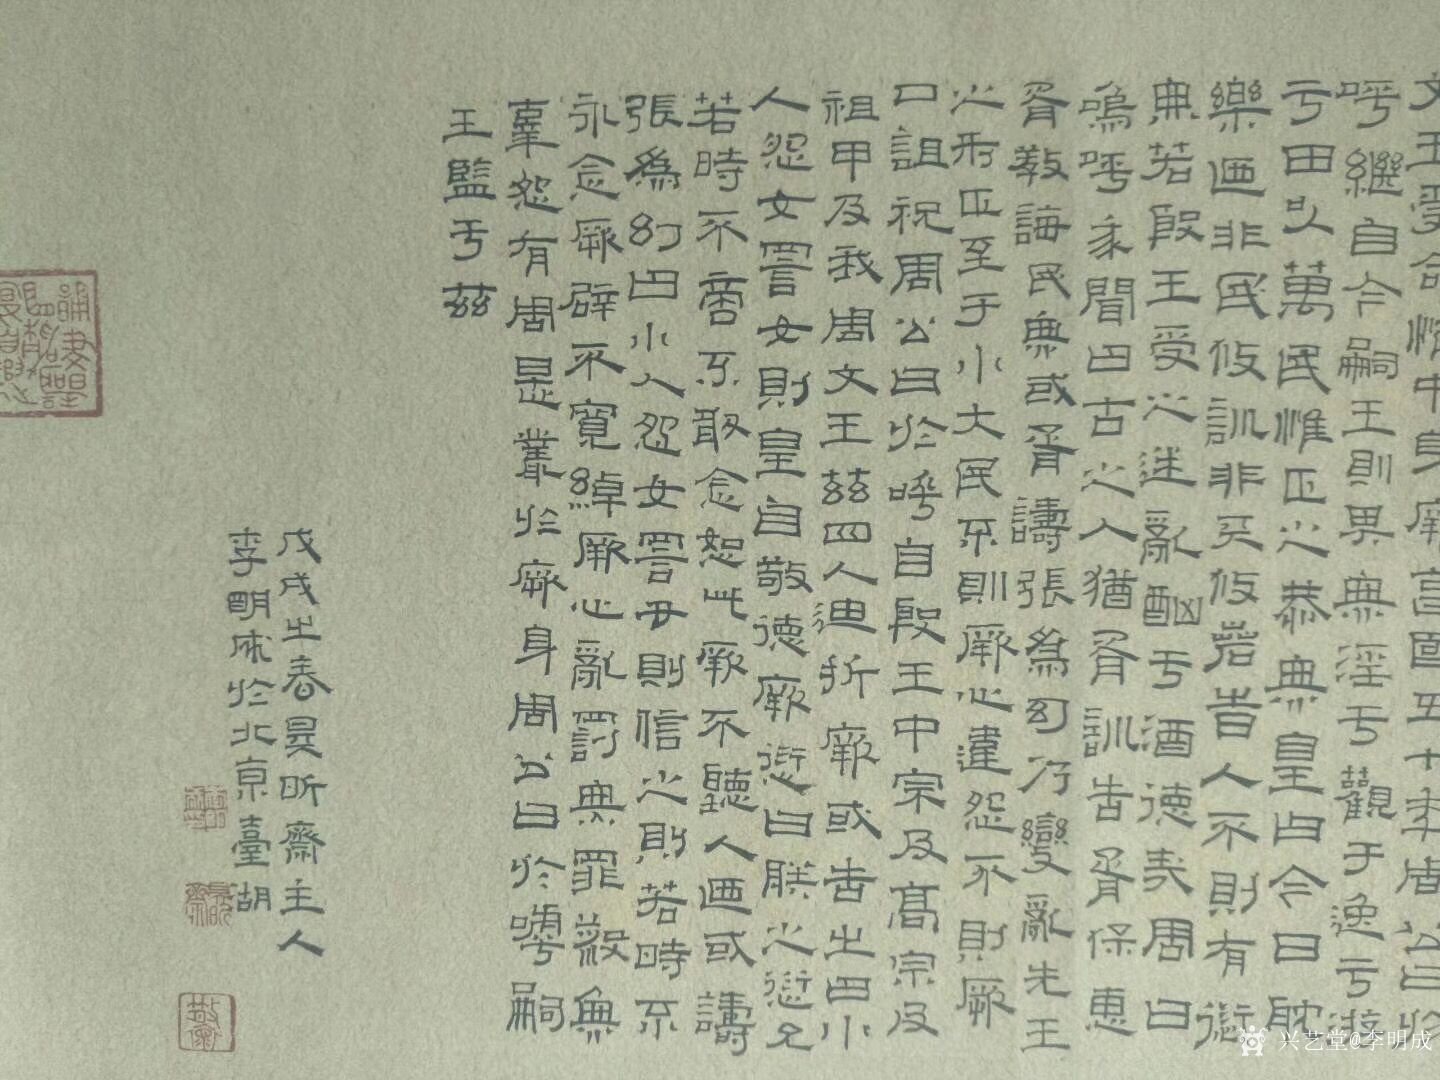 文王受命惟中身厥享國五十年周公曰於
呼繼自今嗣王則其無淫于觀于逸于遊
于田以萬民惟正之恭無皇曰今日耽
樂迺非民攸訓非天攸若昔人不則有愆
無若殷王受之迷亂酗于酒德哉周曰
嗚呼我聞曰古之人猶胥訓告胥保惠
胥教誨民無或胥譸張為幻乃變亂先王
之刑正至于小大民不則厥心違怨不則厥
口詛祝周公曰於呼自殷王中宗及高宗及
祖甲及我周文王茲四人迪哲厥或告之曰小
人怨女詈女則皇自敬德厥愆曰朕之愆允
若時不啻不敢含怒此厥不聽人迺或譸
張為幻曰小人怨女詈女則信之則若時不
永念厥辟不寬綽厥心亂罰無罪殺無
辜怨有同是叢於厥身周公曰於嘑嗣
王監于茲
戊戌之春昊昕齋主人
李明成於北京臺湖
兴艺堂@李明成